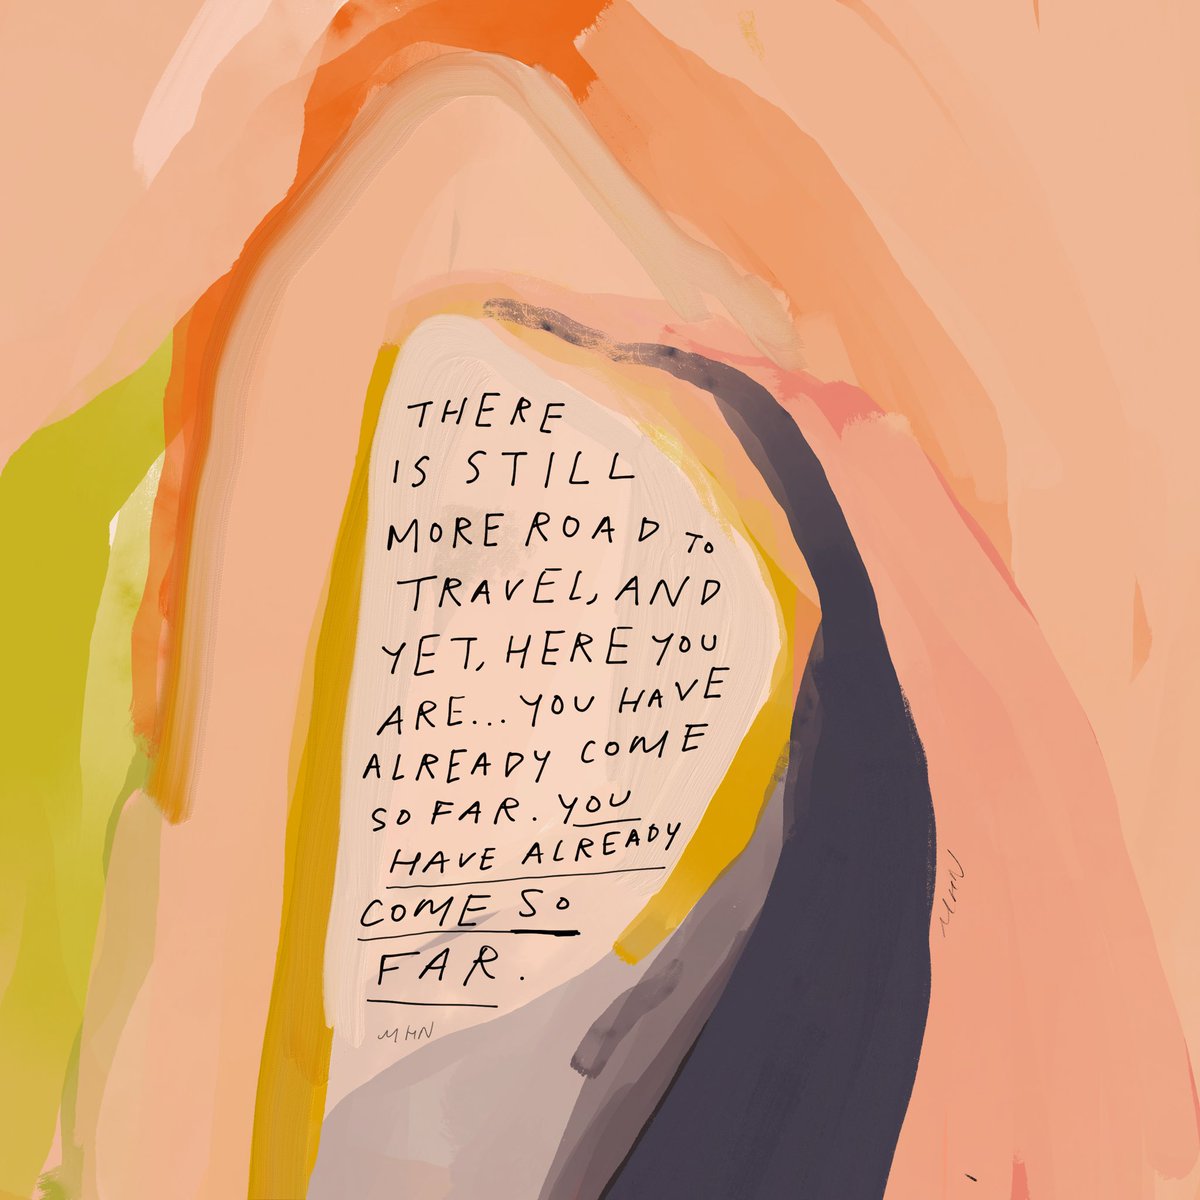 THERE
IS STILL
MORE ROAD TO
TRAVEL, AND
YET, HERE YOU
ARE... YOU HAVE
ALREADY COME
SO FAR. YOU
HAVE ALREADY
COME SO
FAR.
MHN
MHN